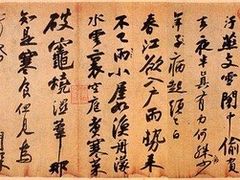 汙燕支雪闇中偷負
去夜半真有力何殊少
年子病起頭已白
春江欲入戶雨勢來
不已雨小屋如漁舟濛
水雲裏空庖煮寒菜
破竈燒濕葦那
知是寒食但見烏